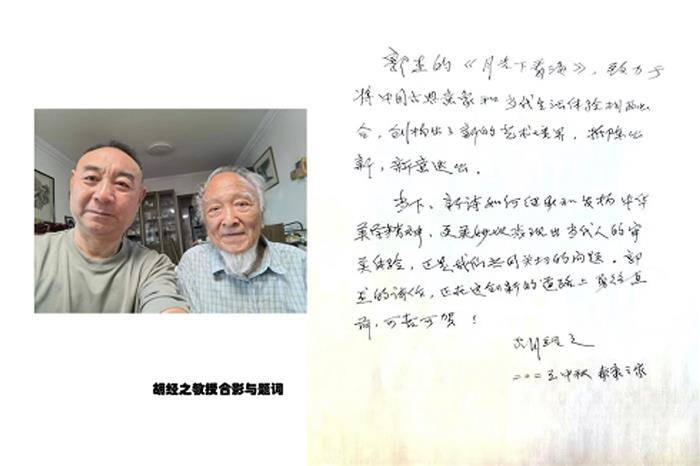 胡经之教授合影与题词
郭杰的《月光下》,致力于
将中国古典意象和当代生活体验相融
合,创构出了新的艺术境界,推陈出
新,新意迭出。
当下,新诗如何继承和发扬中华
美学精神,更美妙地表现出当代人的审
美体验,这是我们共同关切的问题。郭
杰的诗作,正在这创新的道路上勇往直
前,可喜可贺!
胡经之
中秋